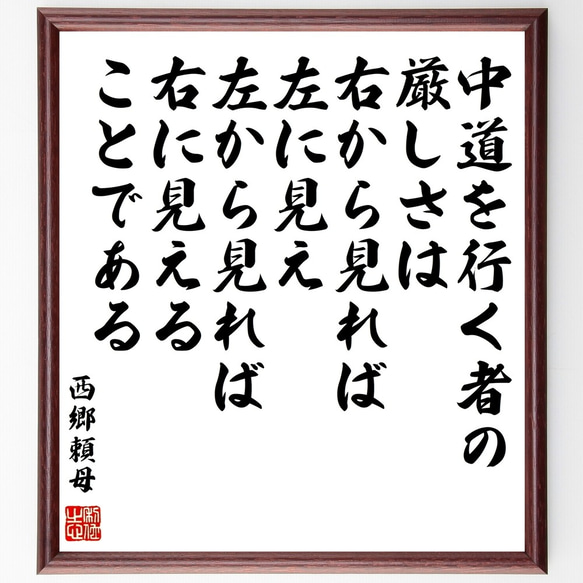 中道を行く者の
厳しさは
右から見れば
左に見え
左から見れば
右に見える
ことである
西郷頼母